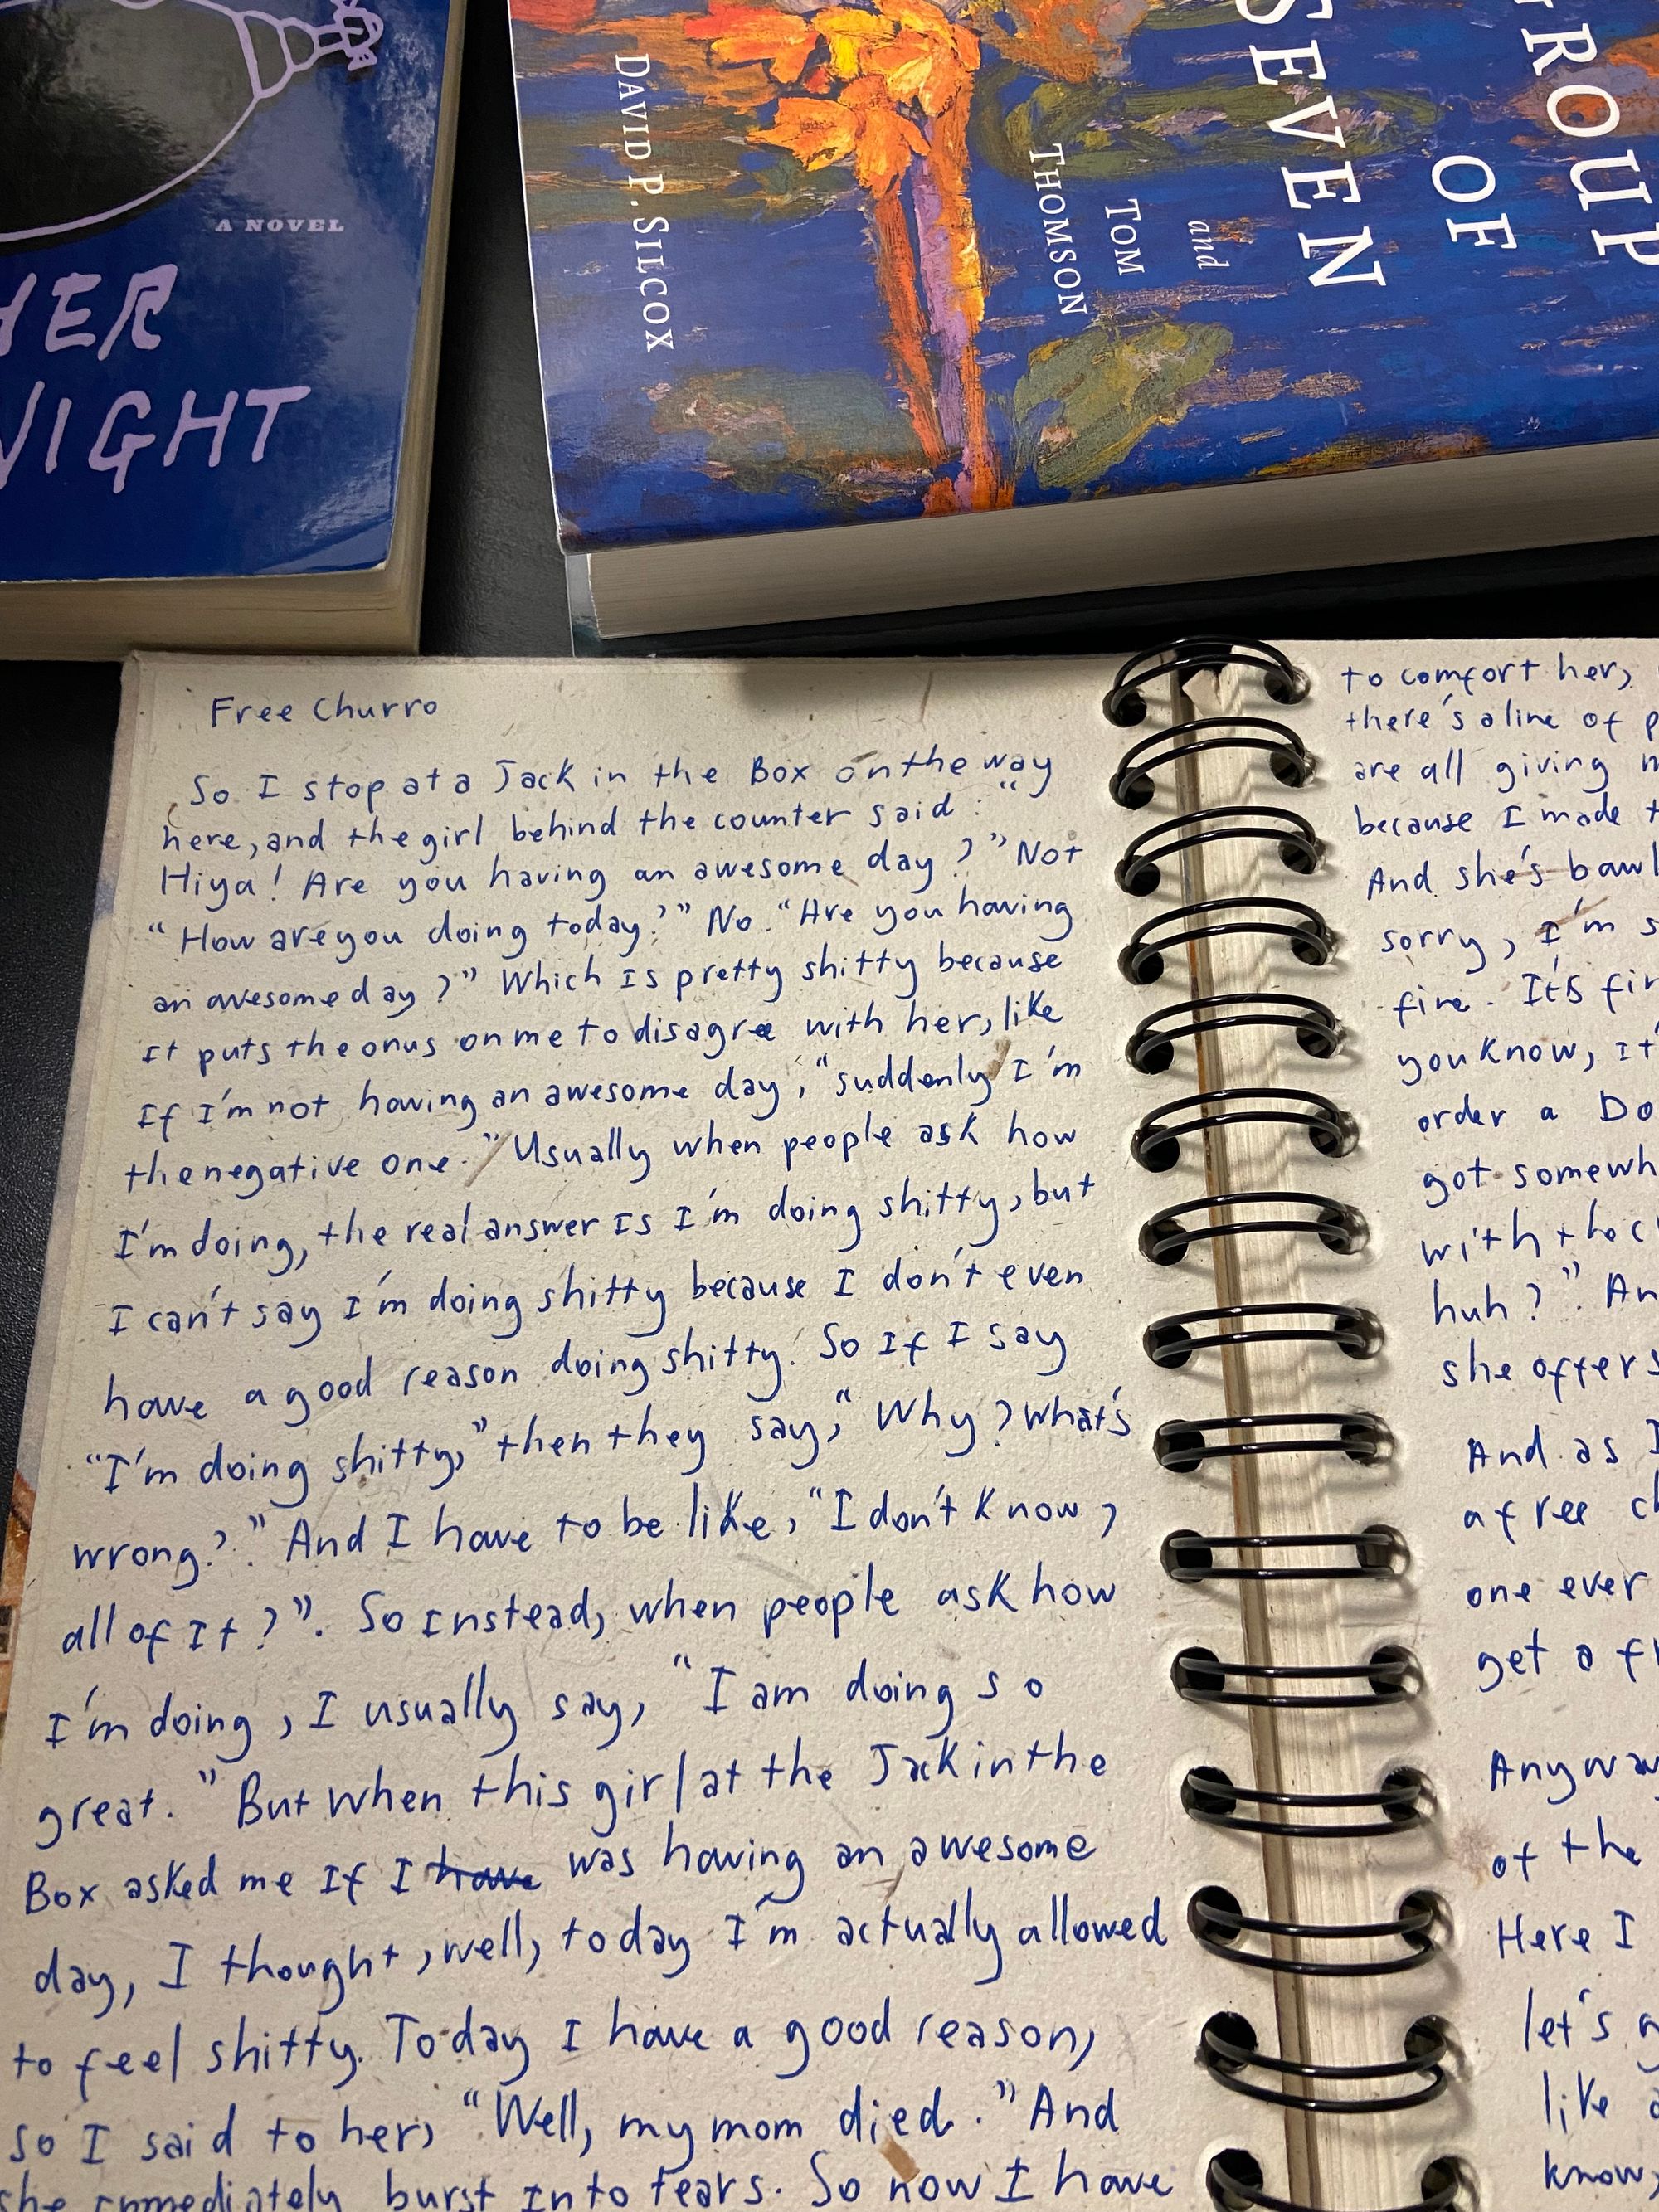 A NOVEL
HER
NIGHT
GROUP
OF
SEVEN
and
TOM
THOMSON
DAVID P. SILCOX
Free Churro
So I stop at a Jack in the Box on the way
here, and the girl behind the counter said: "
Hiya! Are you having an awesome day?" Not
"How are you doing today?" No. "Are you having
an awesome day?" Which is pretty shitty because
it puts the onus on me to disagree with her, like
if I'm not having an awesome day, "suddenly I'm
the negative one." Usually when people ask how
I'm doing, the real answer is I'm doing shitty, but
I can't say I'm doing shitty because I don't even
have a good reason doing shitty. So if I say
"I'm doing shitty," then they say, "Why? What's
wrong?" And I have to be like, "I don't know,
all of it?". So instead, when people ask how
I'm doing, I usually say, "I am doing so
great." But when this girl at the Jack in the
Box asked me if I have was having an awesome
day, I thought, well, today I'm actually allowed
to feel shitty. Today I have a good reason,
so I said to her, "Well, my mom died." And
she immediately burst into tears. So now I have
to comfort her,
there's a line of p
are all giving m
because I made t
And she's bawl
sorry, I'm s
fine. It's fin
you know, it'
order a Do
got somewh
with the c
huh?". An
she offers
And as I
a free ch
one ever
get a fr
Anyway
of the
Here I
let's g
like a
know,